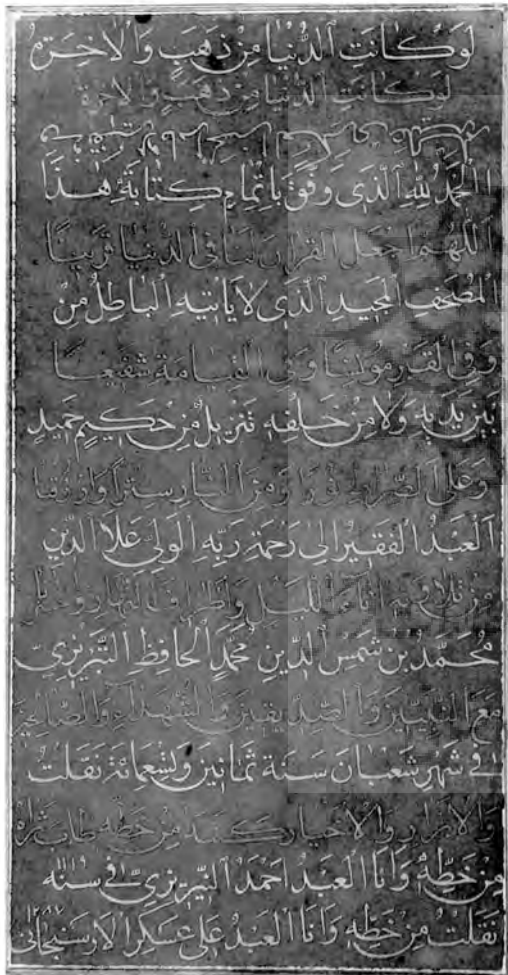 لَوْ كَانَتِ الدُّنْيَا مِنْ ذَهَبٍ وَالْاٰخِرَةُ
لو كانت الدنيا من ذهب والاخرة
اَلْحَمْدُ لِلّٰهِ الَّذِى وَفَّقَ بِاِتْمَامِ كِتَابَةِ هٰذَا
اللهم اجعل القران لنا فى الدنيا قرينا
الْمُصْحَفِ الْمَجِيدِ الَّذِى لَا يَاْتِيهِ الْبَاطِلُ مِنْ
وفى القبر مونسا وفى القيامة شفيعا
بَيْنِ يَدَيْهِ وَلَا مِنْ خَلْفِهِ تَنْزِيلٌ مِنْ حَكِيمٍ حَمِيدٍ
وعلى الصراط نورا ومن النار سترا وارزقنا
اَلْعَبْدُ الْفَقِيرُ اِلٰى رَحْمَةِ رَبِّهِ الْوَلِىِّ عَلَا الدِّينِ
اناء الليل واطراف النهار
مُحَمَّدُ بْنُ شَمْسِ الدِّينِ مُحَمَّدٍ الْحَافِظِ التَّبْرِيزِىِّ
مع النبيين والصديقين والشهداء والصالحين
فِى شَهْرِ شَعْبَانَ سَنَةَ ثَمَانِينَ وَتِسْعَمِائَةَ نَقَلْتُ
والابرار والاخيار كتبه من خطه طاب ثراه
مِنْ خَطِّهِ وَاَنَا الْعَبْدُ اَحْمَدُ النَّيْرِيزِىُّ فِى سَنَه
نَقَلْتُ مِنْ خَطِّهِ وَاَنَا الْعَبْدُ عَلِى عَسْكَرِ الْاَرْسَنْجَانِى ١٢٨٧